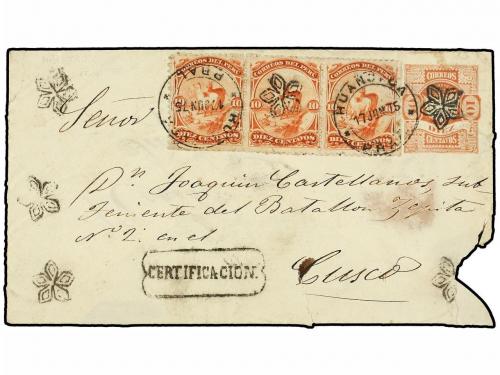 CORREOS DEL PERU CORREOS DEL PERU CORREOS DEL PERU CORREOS
10 10 10 10 10 10
DIEZ CENTAVOS DIEZ CENTAVOS DIEZ CENTAVOS CENTAVOS
17 JUN 75
PRAL
17 JUN 75
Señor
Dn. Joaquin Castellanos, sub
Teniente del Batallon Zepita
Nº 2. en el
CERTIFICACION.
Cusco